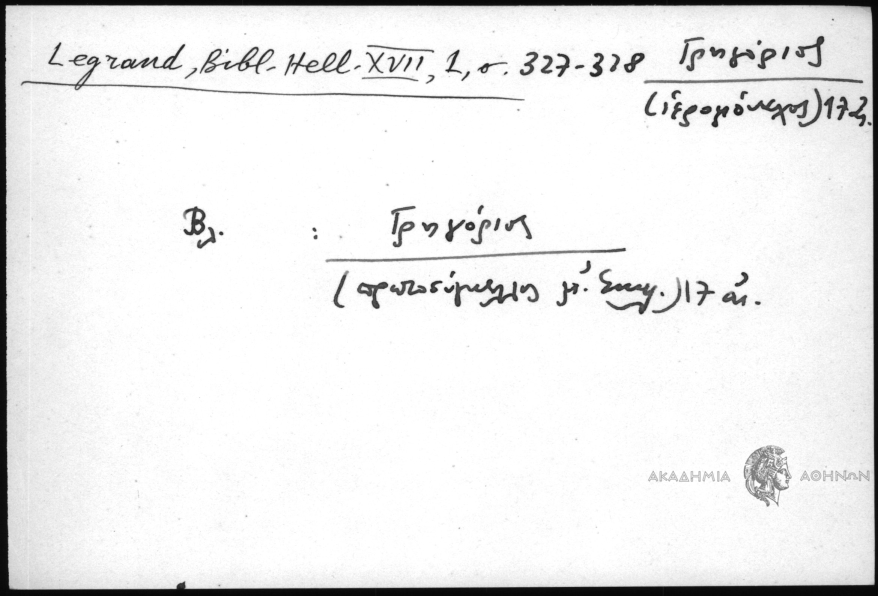 Legrand, Bibl. Hell. XVII, 1, σ. 327-328
Γρηγόριος
(ἱερομόναχος) 17 αἰ.
Βλ. : Γρηγόριος
(πρωτοσύγκελλος μ. ) 17 αἰ.
ΑΚΑΔΗΜΙΑ ΑΘΗΝΩΝ